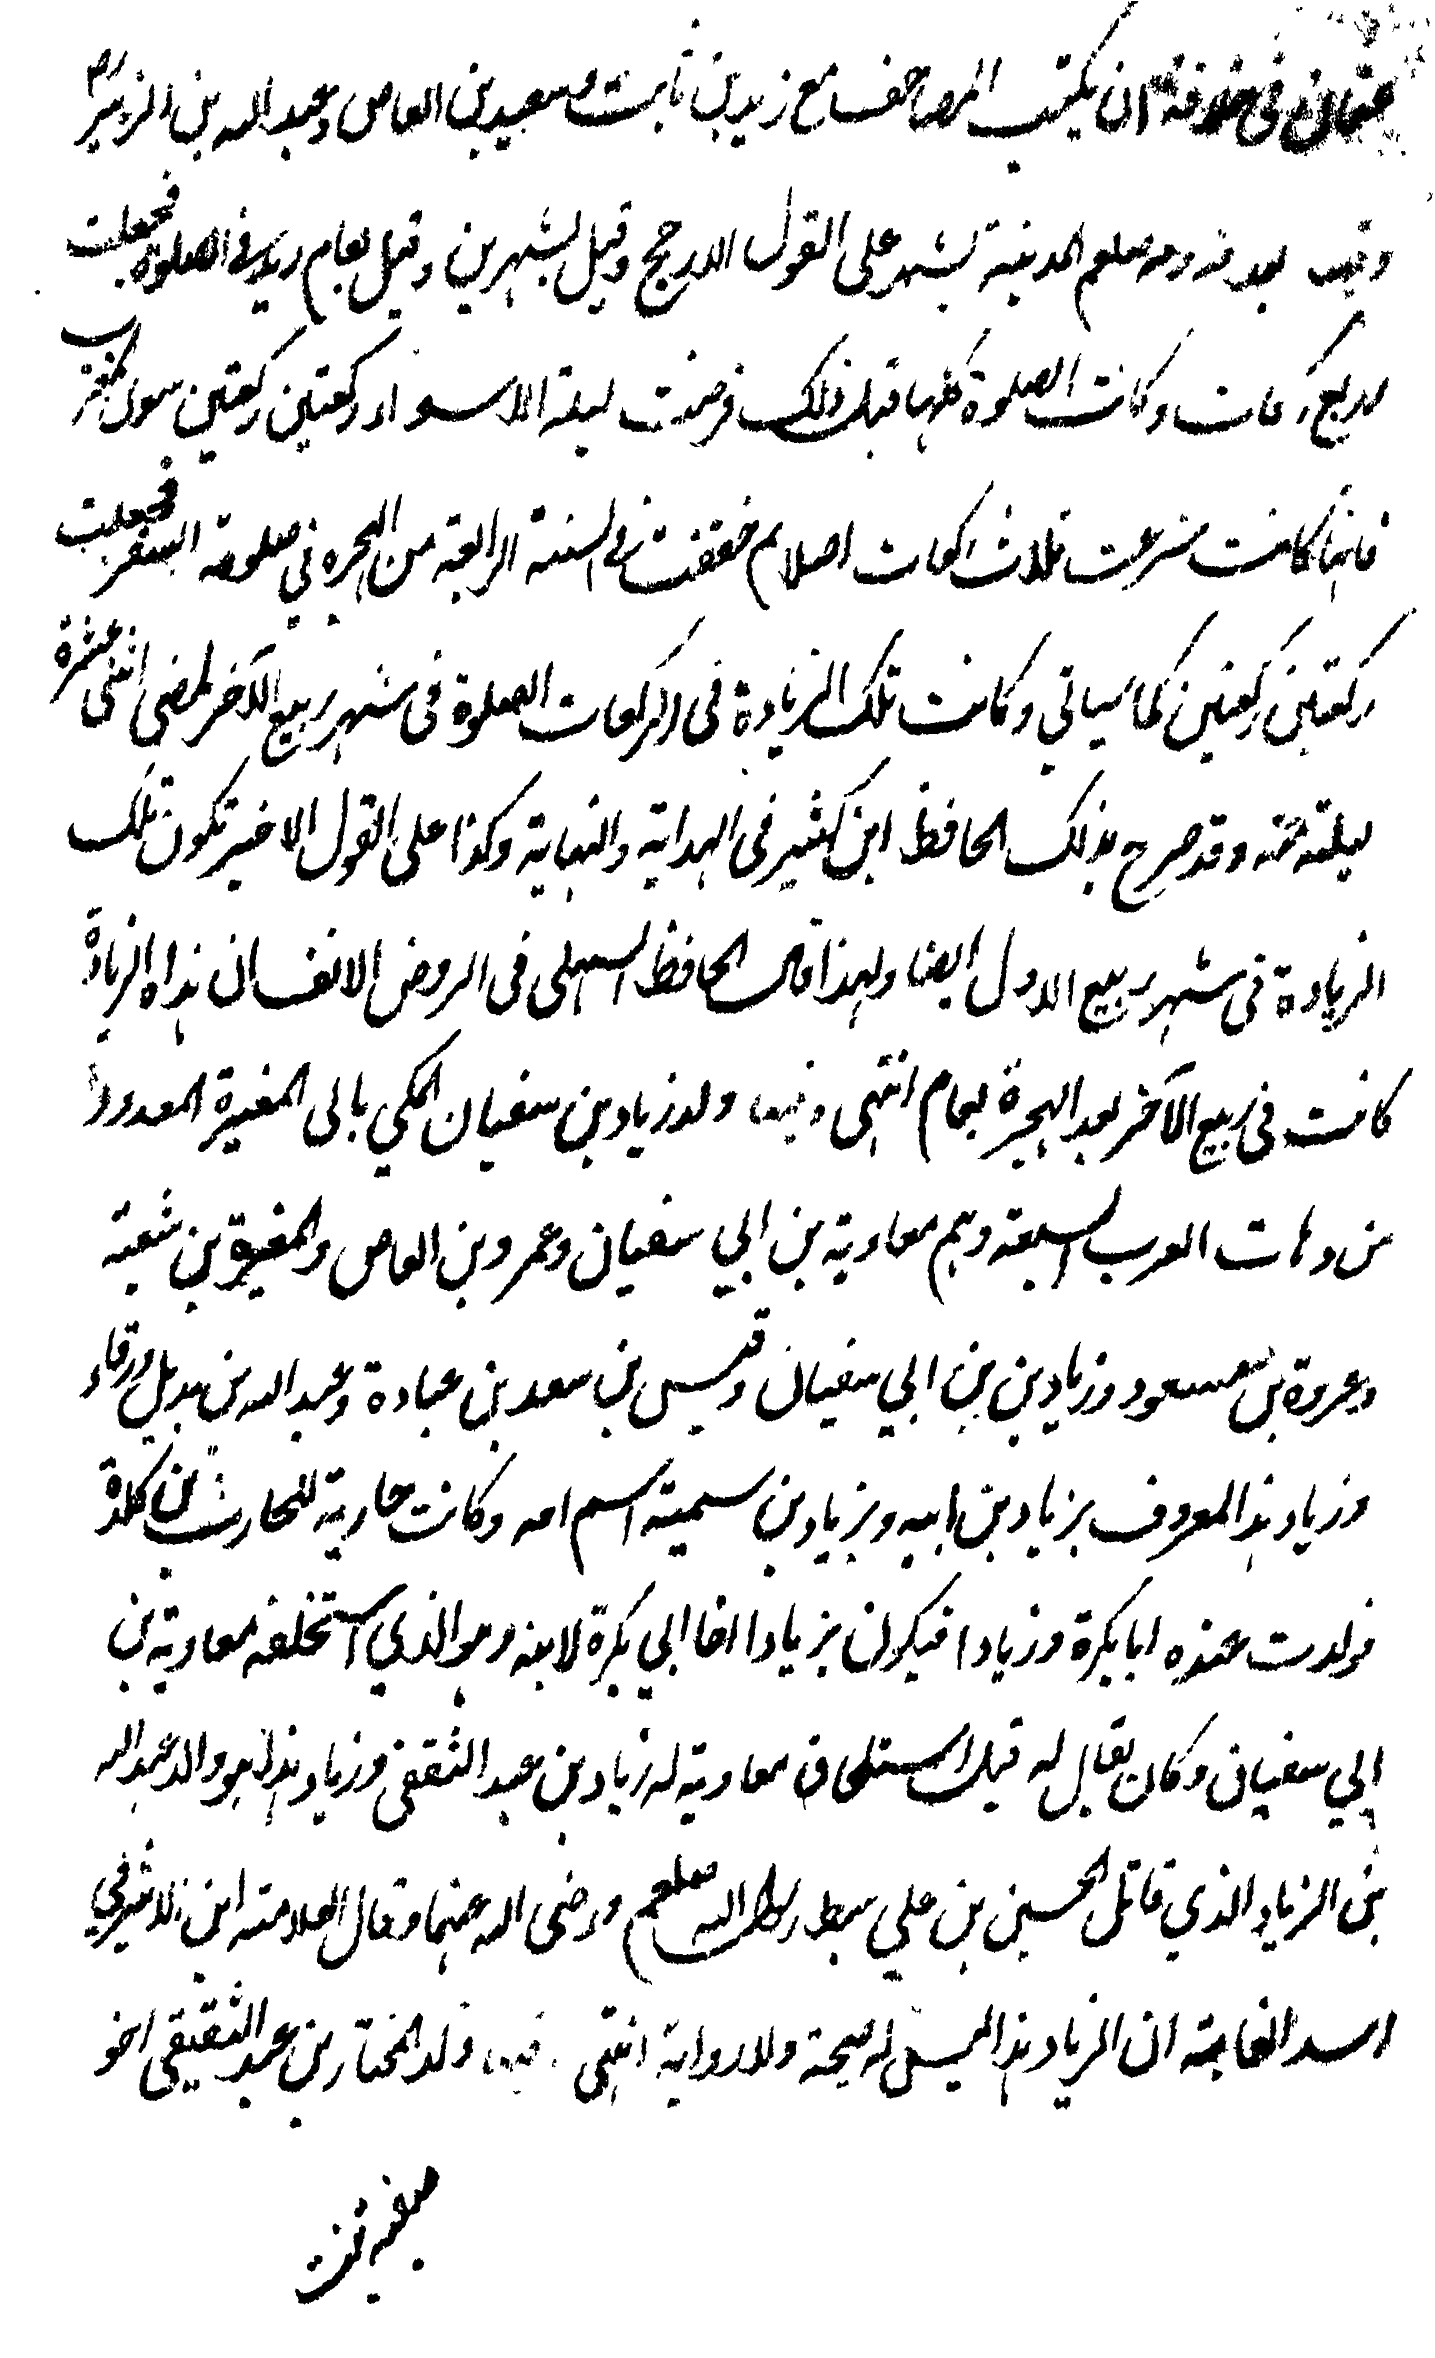 عثمان في خلافته ان يكتب المصاحف مع زيد بن ثابت وسعيد بن العاص وعبد الله بن الزبير رض
وفيها بعد قدومه صلعم المدينة بشهر على القول الارجح وقيل بشهرين وقيل بعام زيد في الصلوة فجعلت
اربع ركعات وكانت الصلوة كلها قبل ذلك فرضت ليلة الاسراء ركعتين ركعتين سوى المغرب
فانها كانت شرعت ثلاث ركعات اصلا ثم خففت في السنة الرابعة من الهجرة في صلوة السفر فجعلت
ركعتين ركعتين كما سياتي وكانت تلك الزيادة في ركعات الصلوة في شهر ربيع الآخر لمضي اثنى عشرة
ليلة منه وقد صرح بذلك الحافظ ابن كثير في البداية والنهاية وكذا على القول الاخير تكون تلك
الزيادة في شهر ربيع الاول ايضا ولهذا قال الحافظ السهيلي في الروض الانف ان هذه الزيادة
كانت في ربيع الآخر بعد الهجرة بعام انتهى وفيها ولد زياد بن سفيان المكي بابي المغيرة المعدود
من دهات العرب السبعة وهم معاوية بن ابي سفيان وعمرو بن العاص والمغيرة بن شعبة
وعروة بن مسعود وزياد بن بن ابي سفيان وقيس بن سعد بن عبادة وعبد الله بن بديل ورقاء
وزياد هذا المعروف بزياد بن ابيه وبزياد بن سمية اسم امه وكانت جارية للحارث بن كلدة
فولدت عنده ابا بكرة وزيادا فيكون زيادا اخا ابي بكرة لامه وهو الذي استخلفه معاوية بن
ابي سفيان وكان يقال له قبل استلحاق معاوية له زياد بن عبيد الثقفي وزياد هذا هو والد عبد الله
بن الزياد الذي قاتل الحسين بن علي سبط رسول الله صلعم ورضى الله عنهما وقال العلامة ابن الاثير في
اسد الغابة ان الزياد هذا ليس له صحبة ولا رواية انتهى وفيها ولد المختار بن عبيد الثقفي اخو
صفية بنت